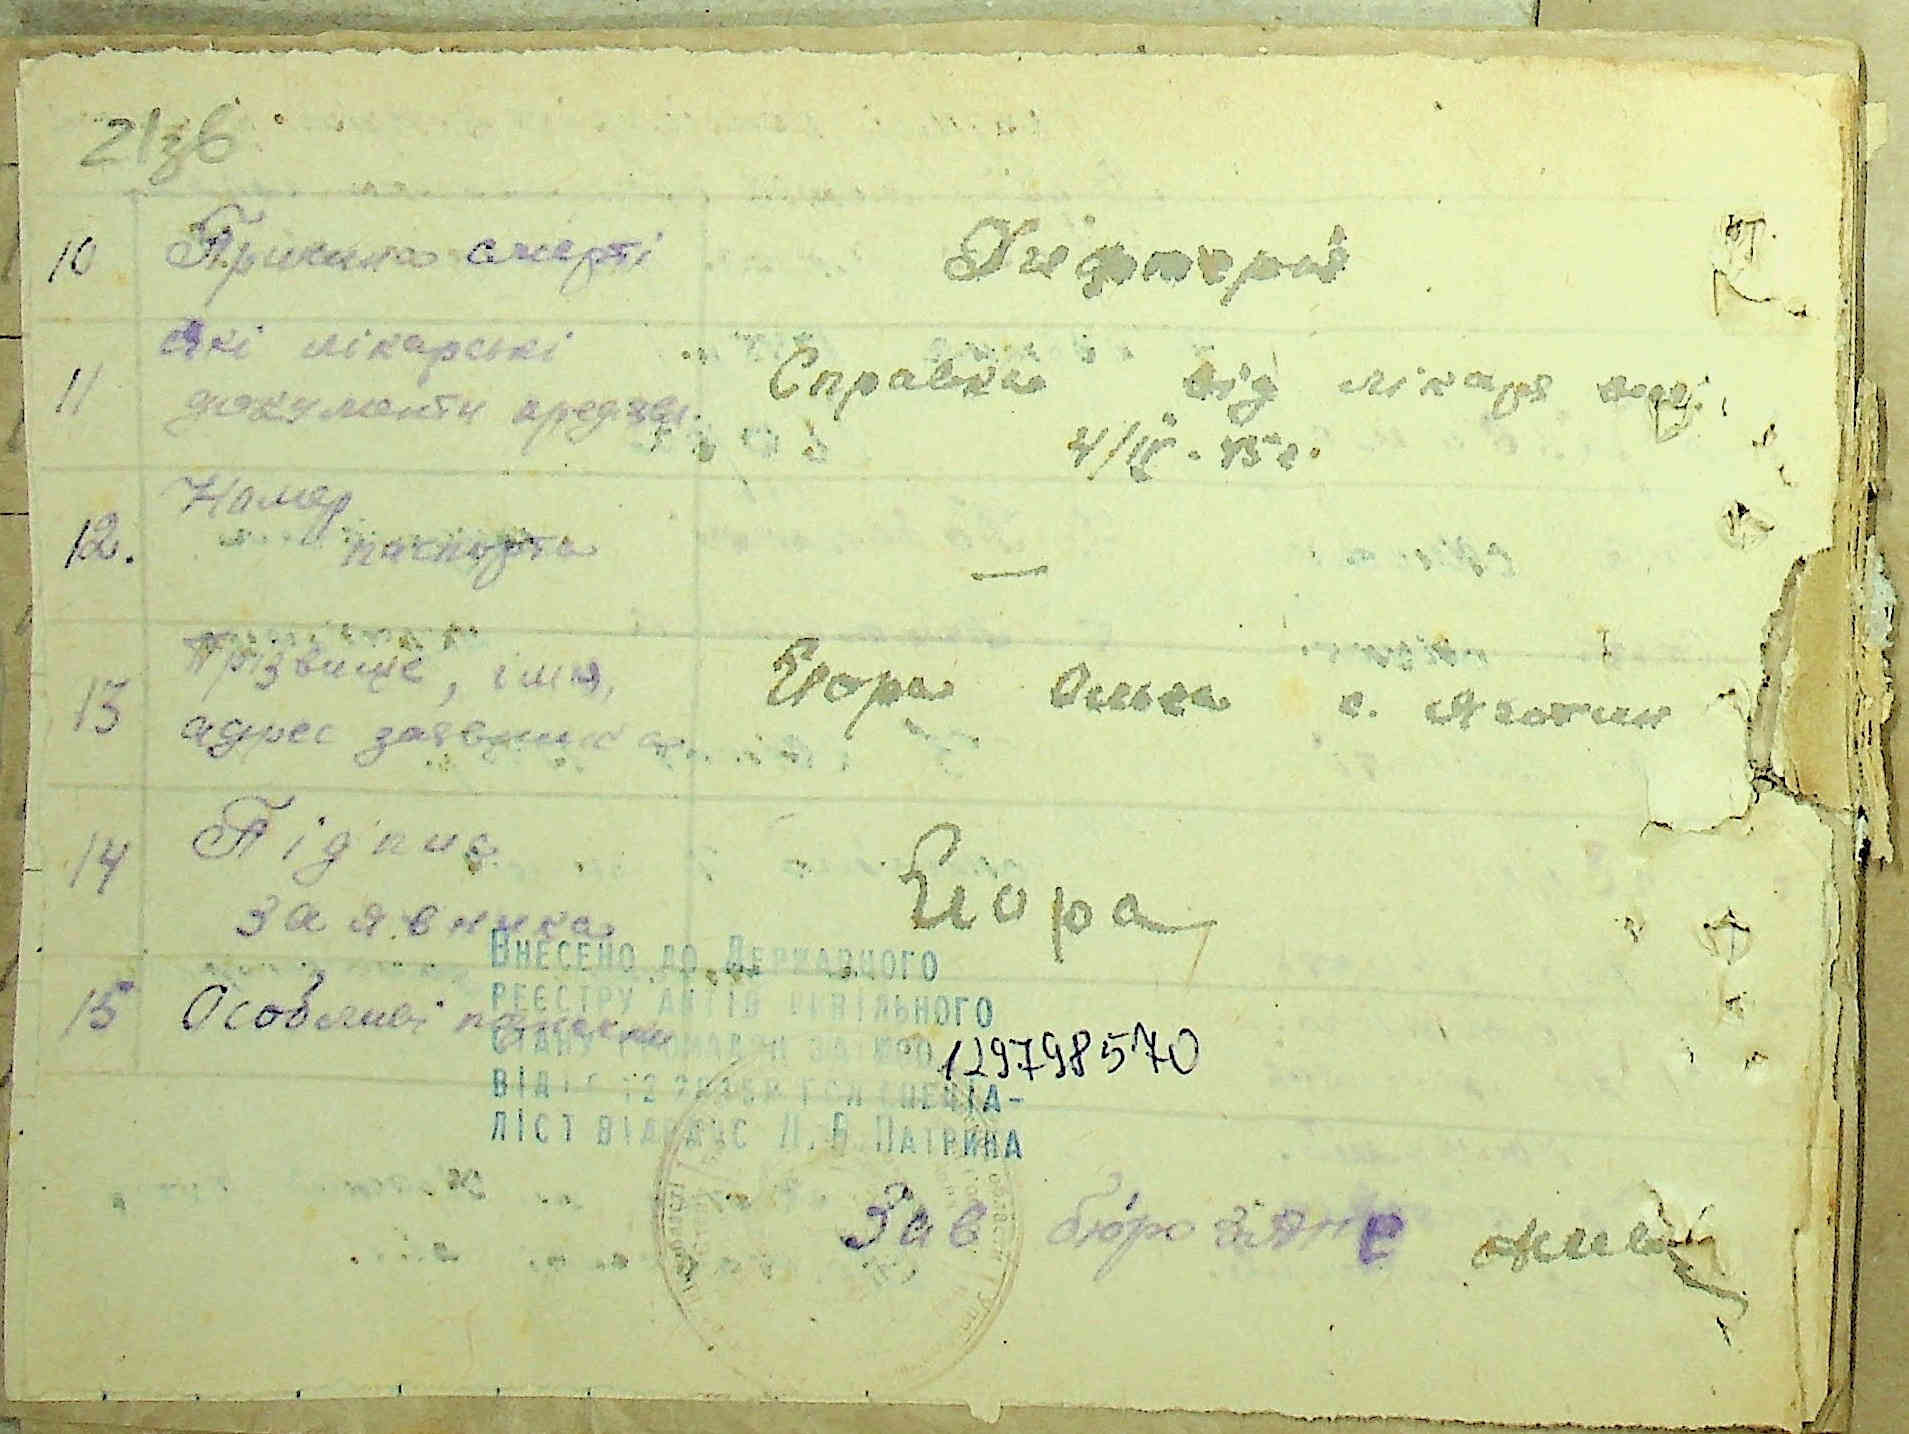 21зв
10 Причина смерті Дифтерія
11 Які лікарські
документи предявл. Справка від лікаря
4/IV. 45 г.
12. Номер
паспорта —
13 Прізвище, імя,
адрес заявника Цюра Ольга с.
14 Підпис
заявника Цюра
15 Особливі
Внесено до Державного
реєстру актів цивільного
стану громадян за №
129798570
спеціа-
ліст ВІДРАЦС Патрина
Зав бюро ЗАГС